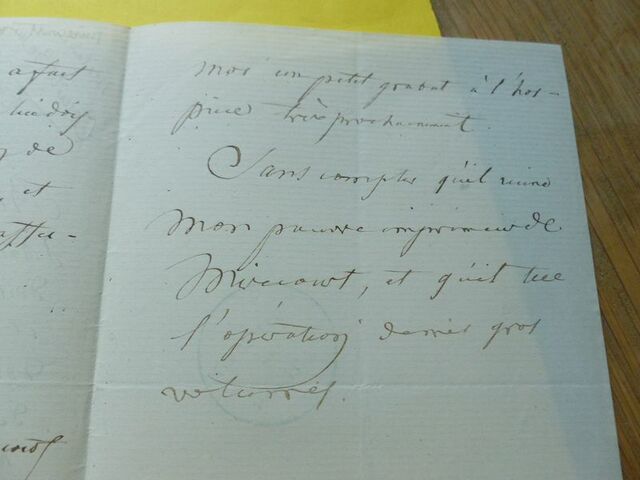 a fait
de
et
moi un petit grabat à l'hos-
pice très prochainement.
Sans compter qu'il ruine
mon pauvre imprimeur de
Mirecourt, et qu'il tue
l'opération de mes gros
volumes.